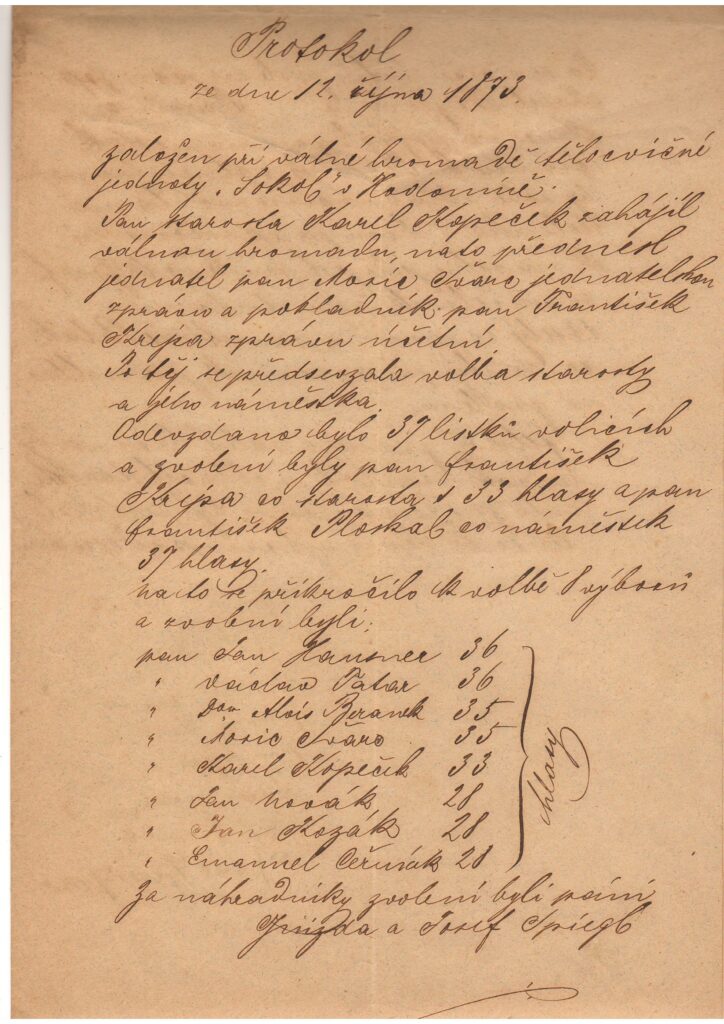 Protokol
ze dne 12. října 1873.
založen při válné hromadě tělocvičné
jednoty „Sokol" v Hodoníně.
Pan starosta Karel Kopeček zahájil
válnou hromadu, nato přednesl
jednatel pan Moric Švarc jednatelskou
zprávu a pokladník pan František
Krejpa zprávu účetní.
Po té se předsevzala volba starosty
a jeho náměstka.
Odevzdano bylo 37 lístků volících
a zvoleni byly pan František
Krejpa co starosta s 33 hlasy a pan
František Ploskal co náměstek
37 hlasy.
na to se přikročilo k volbě 8 výborů
a zvoleni byli:
pan Jan Hausner 36
" Václav Tatar 36
" Alois Beranek 35
" Moric Švarc 35
" Karel Kopeček 33
" Jan Novák 28
" Jan Kozák 28
" Emanuel Čermák 28
hlasy
Za náhradníky zvoleni byli páni
a Josef Spiegl